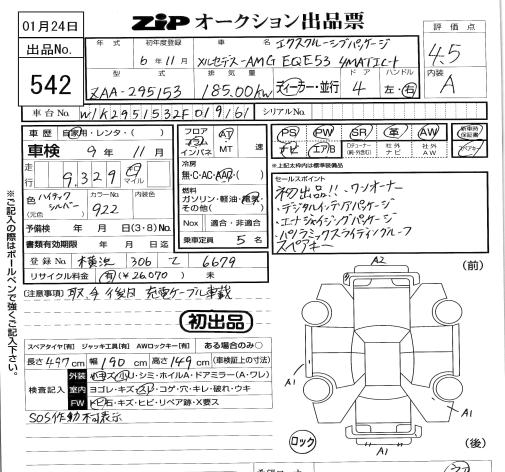 01月24日
ZiP オークション出品票
出品No.
542
年式
初年度登録
6年11月
エクスクルーシブパッケージ
メルセデス-AMG EQE53 4MATICレート
評価点
4.5
内装
A
型式
ZAA-295153
排気量
185.00kw
ディーラー・並行
ドア
4
ハンドル
左・右
車台No.
W1K2951532F019161
シリアルNo.
車歴
自家用・レンタ・( )
車検
9年11月
走行
9,329
マイル
色
ハイテックシルバー
(元色)
カラーNo.
922
内装色
予備検 年 月 日(3・8)No.
書類有効期限 年 月 日迄
登録No.
横浜 306 て 6679
リサイクル料金 有(¥26,070) 未
フロア
コラム
インパネ
AT
MT
速
冷房
無・C・AC・AAC・( )
燃料
ガソリン・軽油・電気・
その他( )
Nox
適合・非適合
乗車定員 5名
PS PW SR 革 AW
ナビ エアB
Dチューナー
(純・外含む)
社外
ナビ
社外
AW
新車時
保証書
スペアキー
*上記太わ内は標準装備品
セールスポイント
初出品!!・ワンオーナー
・デジタルインテリアパッケージ
・エナジャイジングパッケージ
・パノラミックスライディングルーフ
スペアキー
(注意事項) 取、今後日 充電ケーブル車載
初出品
スペアタイヤ[有] ジャッキ工具[有] AWロックキー[有] ある場合のみ○
長さ497cm 幅190cm 高さ149cm (車検証上の寸法)
検査記入
外装 キズ・凹・シミ・ホイルA・ドアミラー(A・ワレ)
室内 ヨゴレ・キズ・スレ・コゲ・穴・キレ・破れ・ウキ
FW 飛石・キズ・ヒビ・リペア跡・X要ス
SOS作動不可表示
※ご記入の際はボールペンで強くご記入下さい。
A2
(前)
A1
A1
A1
ロック
(後)